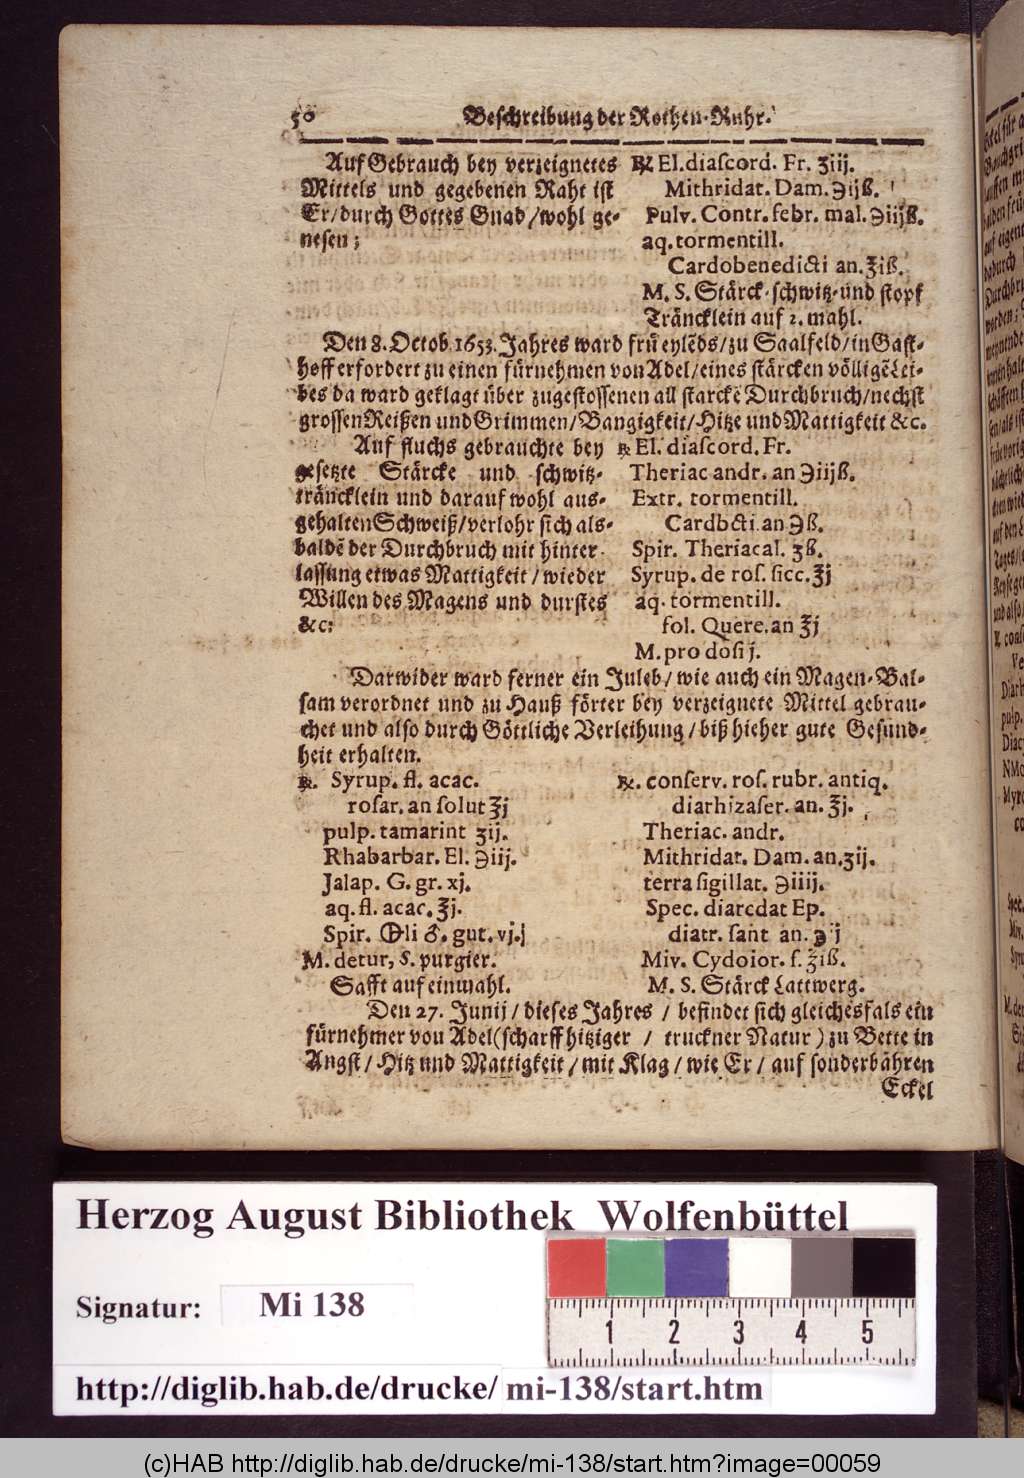 50 Beschreibung der Rothen-Ruhr.
Auf Gebrauch bey verzeignetes
Mittels und gegebenen Raht ist
Er/durch Gottes Gnad/wohl ge-
nesen;
℞ El. diaſcord. Fr. ʒiij.
Mithridat. Dam. ℈ijß.
Pulv. Contr. febr. mal. ℈iijß.
aq. tormentill.
Cardobenedicti an. ℥iß.
M. S. Stärck-schwitz-und stopf
Träncklein auf 2. mahl.
Den 8. Octob. 1653. Jahres ward frü eylēds/zu Saalfeld/in Gast-
hoff erfordert zu einen fürnehmen von Adel/eines stärcken völligē Lei-
bes da ward geklagt über zugestossenen all starckē Durchbruch/nechst
grossen Reißen und Grimmen/Bangigkeit/Hitze und Mattigkeit &c.
Auf fluchs gebrauchte bey
gesetzte Stärcke und schwitz-
träncklein und darauf wohl aus-
gehalten Schweiß/verlohr sich als-
baldē der Durchbruch mit hinter-
lassung etwas Mattigkeit/wieder
Willen des Magens und durstes
&c:
℞ El. diaſcord. Fr.
Theriac andr. an ℈iijß.
Extr. tormentill.
Cardbcti. an ℈ß.
Spir. Theriacal. ʒß.
Syrup. de roſ. ſicc. ℥j
aq. tormentill.
fol. Querc. an ℥j
M. pro doſi j.
Darwider ward ferner ein Juleb/wie auch ein Magen-Bal-
sam verordnet und zu Hauß förter bey verzeignete Mittel gebrau-
chet und also durch Göttliche Verleihung/biß hieher gute Gesund-
heit erhalten.
℞. Syrup. fl. acac.
roſar. an ſolut ℥j
pulp. tamarint ʒij.
Rhabarbar. El. ℈iij.
Jalap. G. gr. xj.
aq. fl. acac. ℥j.
Spir. Ꝏli ♂. gut. vj.j
M. detur, S. purgier.
Safft auf einmahl.
℞. conſerv. roſ. rubr. antiq.
diarhizaſer. an. ℥j.
Theriac. andr.
Mithridat. Dam. an. ʒij.
terra ſigillat. ℈iiij.
Spec. diarcdat Ep.
diatr. ſant an. ℈j
Miv. Cydoior. ſ. ℥iß.
M. S. Stärck Lattwerg.
Den 27. Junij/dieses Jahres/befindet sich gleichesfals ein
fürnehmer von Adel(scharff hitziger / truckner Natur) zu Bette in
Angst/Hitz und Mattigkeit/mit Klag/wie Er/auf sonderbähren
Eckel
Herzog August Bibliothek Wolfenbüttel
Signatur: Mi 138
1 2 3 4 5
http://diglib.hab.de/drucke/ mi-138/start.htm
(c)HAB http://diglib.hab.de/drucke/mi-138/start.htm?image=00059